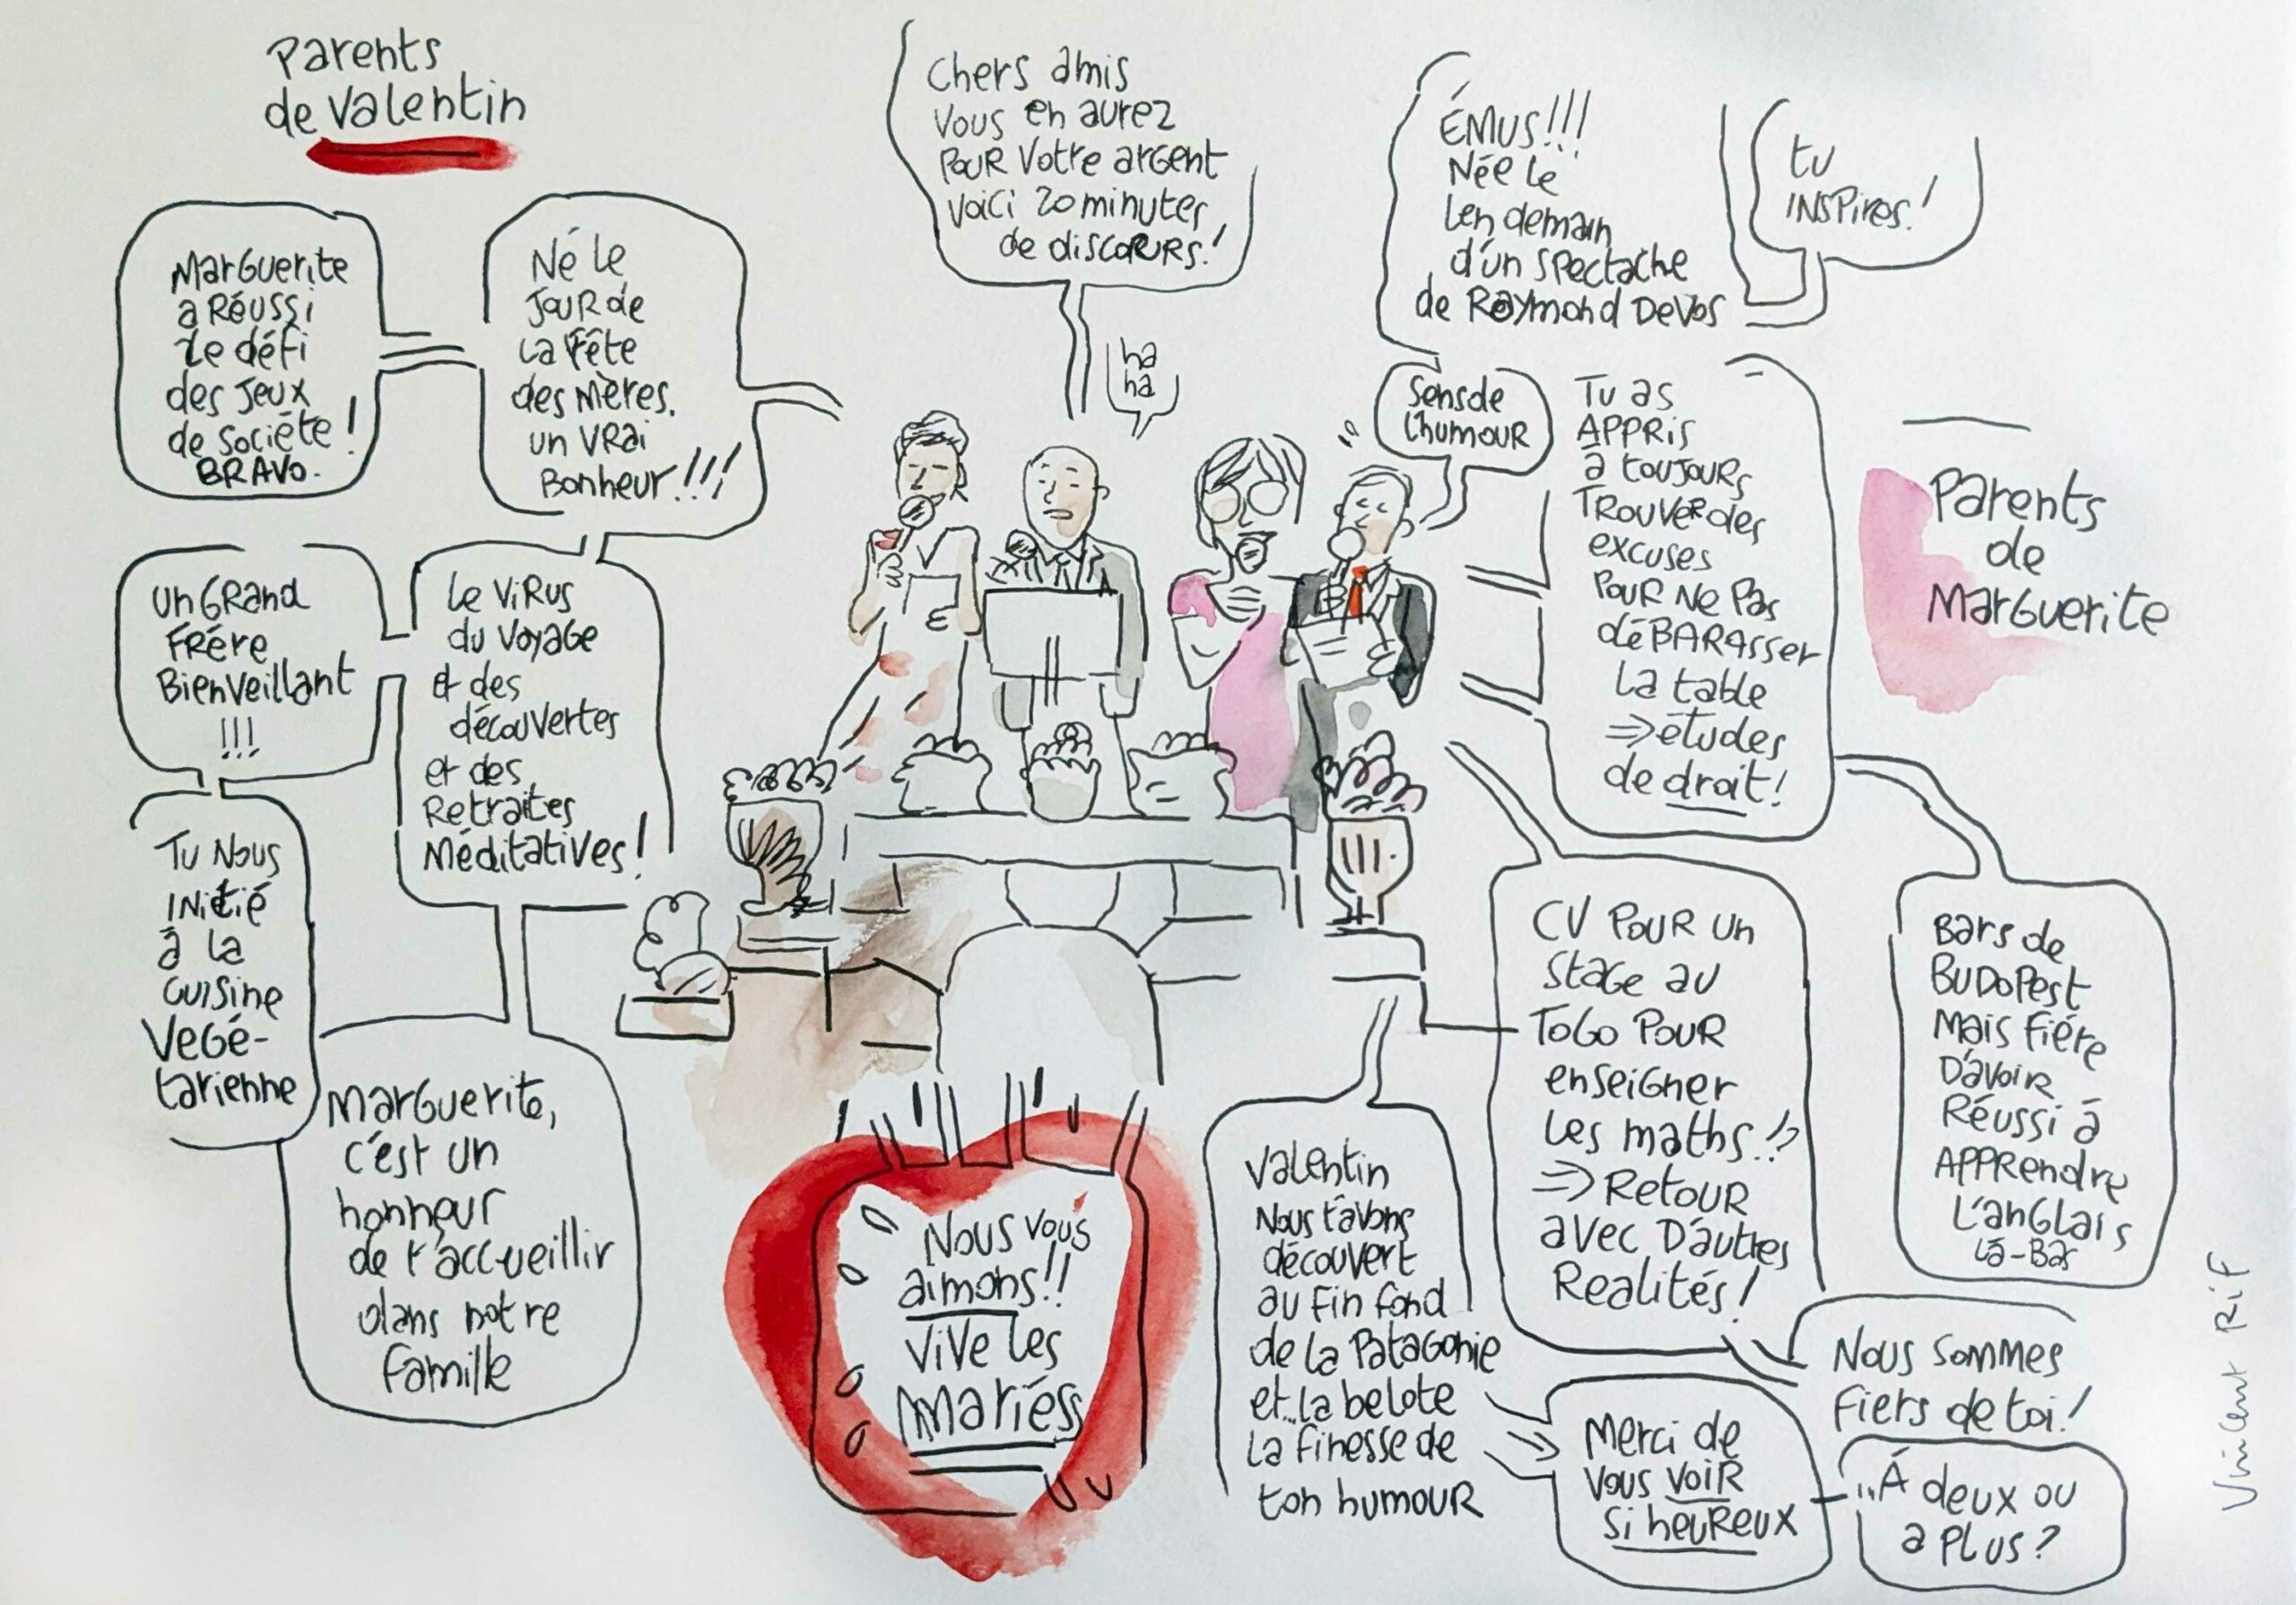 Parents
de Valentin
Marguerite
a Réussi
Le défi
des Jeux
de Société !
BRAVO.
Né le
Jour de
La Fête
des Mères.
un VRai
Bonheur !!!
un Grand
Frère
Bienveillant
!!!
Le Virus
du Voyage
et des
découvertes
et des
Retraites
Méditatives !
Tu Nous
INitié
à la
cuisine
Végé-
tarienne
Marguerite,
c'est un
honneur
de t'accueillir
dans notre
famille
Chers amis
Vous en aurez
Pour Votre argent
Voici 20 minutes
de discours !
ha
ha
ÉMUS !!!
Née Le
Lendemain
d'un spectache
de Raymond Devos
tu
INSPires !
Sens de
L'humour
Tu as
APPris
à toujours
Trouver des
excuses
Pour Ne Pas
déBARAsser
La table
⇒ études
de droit !
Parents
de
Marguerite
CV Pour un
Stage au
Togo Pour
enseigner
Les maths !?
⇒ Retour
avec D'autres
Realités !
Bars de
BUDOPest
Mais Fière
D'avoir
Réussi à
APPRendre
L'anglais
Là-Bas
Nous Sommes
Fiers de toi !
Valentin
Nous t'avons
découvert
au fin fond
de la Patagonie
et...la belote
La finesse de
ton humour
Merci de
Vous VOIR
Si heureux
..À deux ou
a Plus ?
Nous vous
aimons !!
Vive Les
Mariés
Vincent Rif